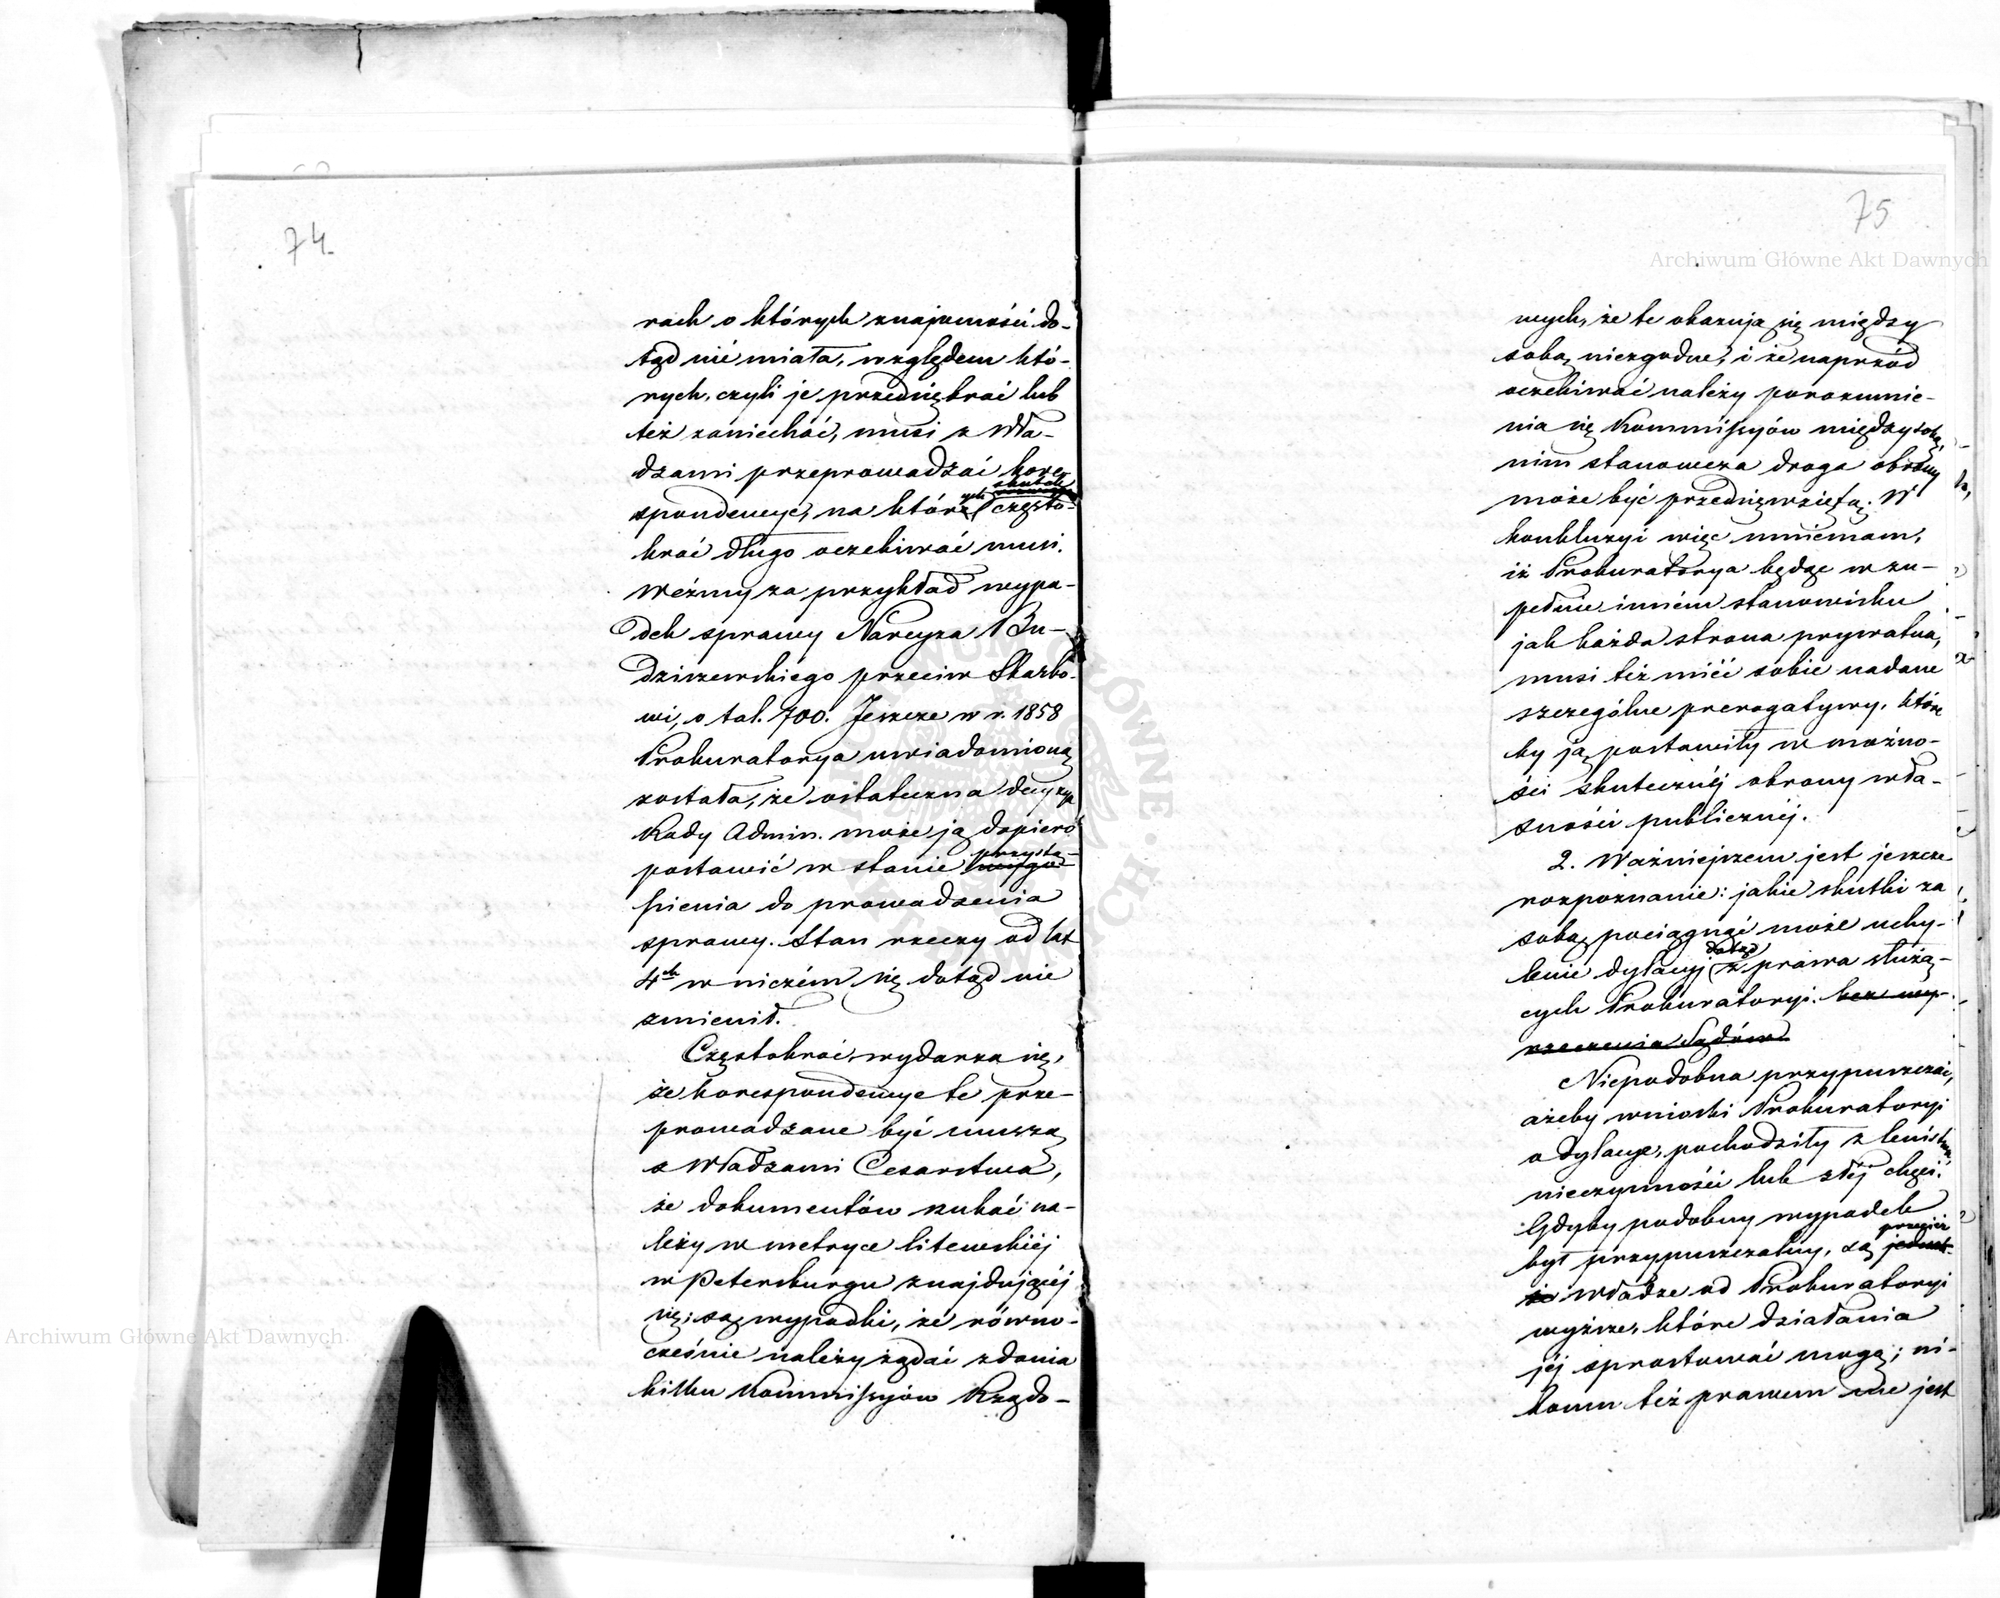 74.
rach o których znajomości do-
tąd nié miała, względem któ-
rych, czyli je przedsiębrać lub
też zaniechać, musi z Wła-
dzami przeprowadzać kore-
spondencye, na których skutek często-
kroć długo oczekiwać musi.
Weźmy za przykład wypa-
dek sprawy Narcyza Bu-
dziszewskiego przeciw Skarbo-
wi, o tal. 700. Jeszcze w r. 1858
Prokuratorya uwiadomioną
została, że ostateczna decyzya
Rady Admin. może ją dopiero
postawić w stanie przystą-
pienia do prowadzenia
sprawy. Stan rzeczy od lat
4ch w niczém się dotąd nie
zmienił.
Częstokroć wydarza się,
że korespondencye te prze-
prowadzane być muszą
z Władzami Cesarstwa,
że dokumentów szukać na-
leży w metryce litewskiéj
w Petersburgu znajdującéj
się; są wypadki, że równo-
cześnie należy żądać zdania
kilku Kommissyów Rządo-
75
wych, że te okazują się między
sobą niezgodne, i że naprzód
oczekiwać należy porozumie-
nia się Kommissyów między sobą,
nim stanowcza droga obrony
może być przedsięwziętą. W
konkluzyi więc mniemam,
iż Prokuratorya będąc w zu-
pełnie inném stanowisku
jak każda strona prywatna,
musi też mieć sobie nadane
szczególne prerogatywy, które
by ją postawiły w możno-
ści skutecznéj obrony wła-
sności publicznéj.
2. Ważniejszem jest jeszcze
rozpoznanie: jakie skutki za
sobą pociągnąć może uchy-
lenie dylacyj dotąd z prawa służą-
cych Prokuratoryi. bez wy-
rzeczenia Sądów
Niepodobna przypuszczać,
ażeby wnioski Prokuratoryi
o dylacye, pochodziły z lenistwa,
nieczynności lub złéj chęci.
Gdyby podobny wypadek
był przypuszczalny, są przecież
Władze od Prokuratoryi
wyższe, które działania
jéj sprostować mogą; ni-
komu też prawem nie jest
Archiwum Główne Akt Dawnych
Archiwum Główne Akt Dawnych